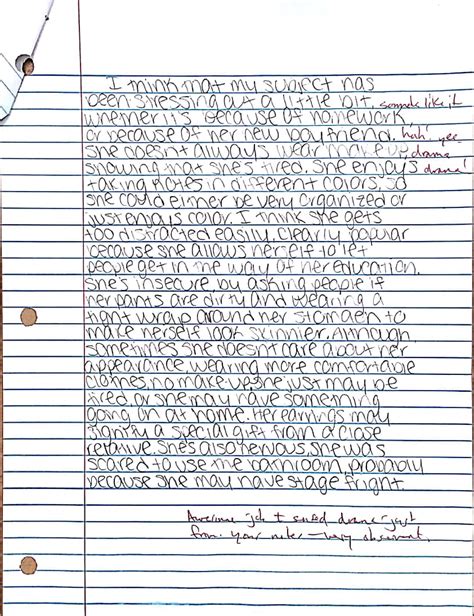 I think that my subject has
been stressing out a little bit, sounds like it
whether it's because of homework,
or because of her new boyfriend. hah! yes
She doesn't always wear makeup, drama
showing that she's tired. She enjoys drama!
taking notes in different colors, so
she could either be very organized or
just enjoys color. I think she gets
too distracted easily. Clearly popular
because she allows herself to let
people get in the way of her education.
She's insecure by asking people if
her pants are dirty and wearing a
tight wrap around her stomach to
make herself look skinnier. Although
sometimes she doesn't care about her
appearance, wearing more comfortable
clothes, no makeup, she just may be
tired or she may have something
going on at home. Her earrings may
signify a special gift from a close
relative. She's also nervous. She was
scared to use the bathroom, probably
because she may have stage fright.
Awesome job drama - just
from your notes - very observant.